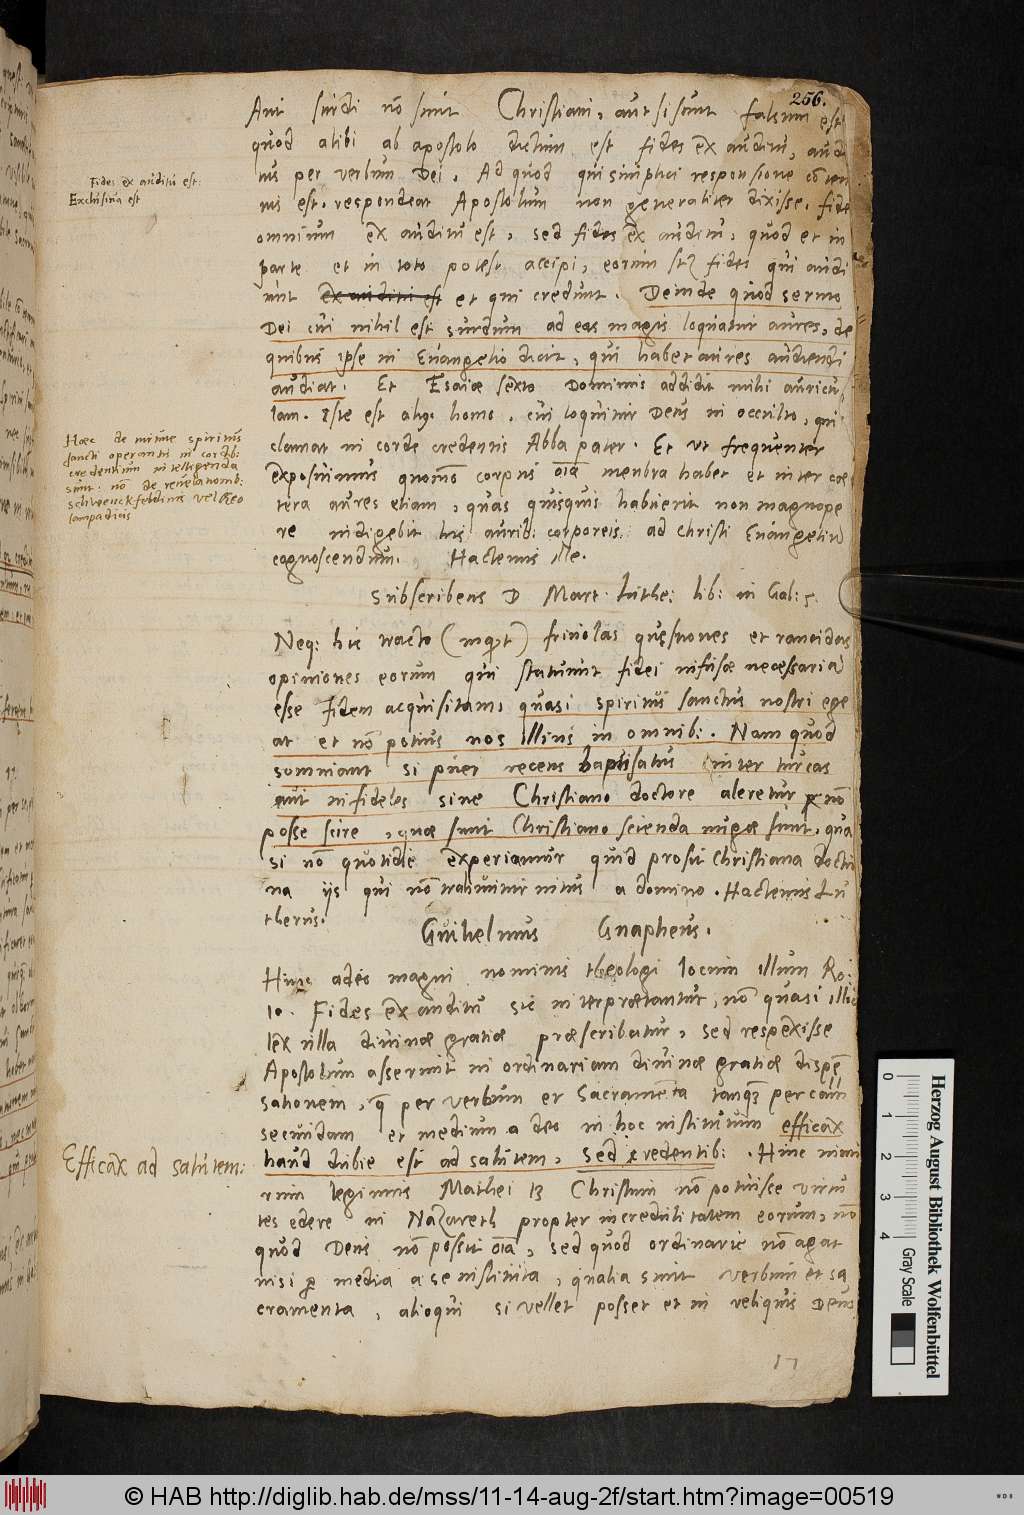 256.
Aut surdi nō sunt Christiani, aut si sunt falsum est
quod alibi ab apostolo dictum est fides ex auditu, audi
tus per verbum Dei, Ad quod qui simplici responsione cōten
tus est, respondeat Apostolum non generaliter dixisse, fides
omnium ex auditu est, sed fides ex auditu, quod et in
parte et in toto potest accipi, eorum sꝫ fides qui audi
unt ex auditu est et qui credunt. Deinde quod sermo
Dei cui nihil est surdum ad eas magis loquatur aures, de
quibus ipse in Euangelio dicit, qui habet aures audiendi
audiat. Et Esaiae sexto Dominus addidit mihi auricu
lam. Iste est aliqs homo, cui loquitur Deus in occulto, qui
clamat in corde credentis Abba pater. Et ut frequenter
exposuimus quomō corpus oīa menbra habet et inter cae
tera aures etiam, quas quisquis habuerit non magnope
re indigebit his aurib: corporeis ad Christi Euangeliū
cognoscendum. Hactenus ille.
Subscribens D Mart: Luthe: lib: in Gal: 5.
Neq: hic tracto (inquit) friuolas quęstiones et rancidas
opiniones eorum qui statuunt fidei infusae necessariā
esse fidem acquisitam, quasi spiritus sanctus nostri ege
at et nō potius nos illius in omnib:. Nam quod
somniant si puer recens baptisatus inter turcas
aut infideles sine Christiano doctore aleretur ꝑ nō
posse scire, quae sunt Christiano scienda nugae sunt, qua
si nō quotidie experiamur quid prosit Christiana doctri
na ijs qui nō trahuntur intus a domino. Hactenus Lu
therus.
Guihelmus Gnapheus.
Hinc adeo magni nominis theologi locum illum Ro:
10. Fides ex auditu sic interpraetantur, nō quasi illic
lex ulla diuinae gratiae praescribatur, sed respexisse
Apostolum asserunt in ordinariam diuinae gratiae dispē
sationem, q̄ per verbum et Sacramēta tanqꝫ per caūm
secundam et medium a deo in hoc institutum efficax
haud dubie est ad salutem, sed credentib:. Hinc nimi
rum legimus Mathei 13 Christum nō potuisse virtu
tes edere in Nazareth propter incredulitatem eorum, nō
quod Deus nō possit oīa, sed quod ordinarie nō agat
nisi ꝑ media a se instituta, qualia sunt verbum et sa
cramenta, alioqui si vellet posset et in reliquis Deus
17
Fides ex auditu est:
Exclusiua est
Haec de mirime spiritus
sancti operantis in cordib:
credentium intelligenda
sunt: nō de reuelationib:
schwenckfeldius vel Oeco
lampadius
Efficax ad salutem:
Herzog August Bibliothek Wolfenbüttel
0 1 2 3 4
Gray Scale
© HAB http://diglib.hab.de/mss/11-14-aug-2f/start.htm?image=00519